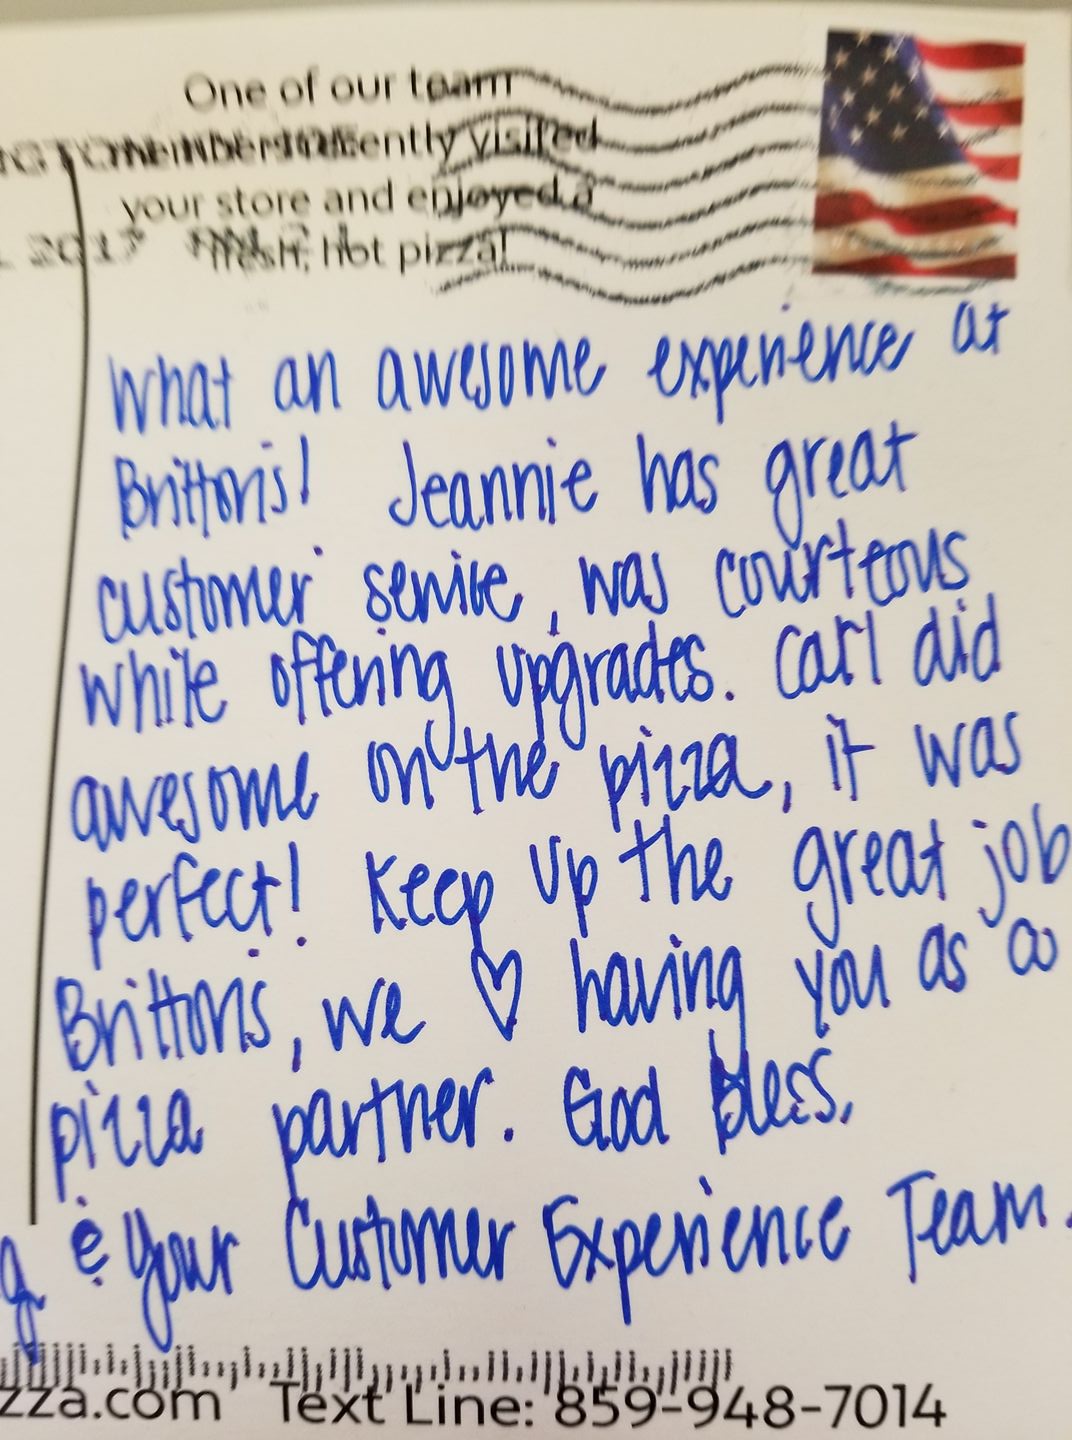 One of our team
members recently visited
your store and enjoyed a
2017 PM
fresh, hot pizza!
What an awesome experience at
Britton's! Jeannie has great
customer service, was courteous
while offering upgrades. Carl did
awesome on the pizza, it was
perfect! Keep up the great job
Britton's, we ♡ having you as a
pizza partner. God Bless.
& Your Customer Experience Team.
zza.com Text Line: 859-948-7014